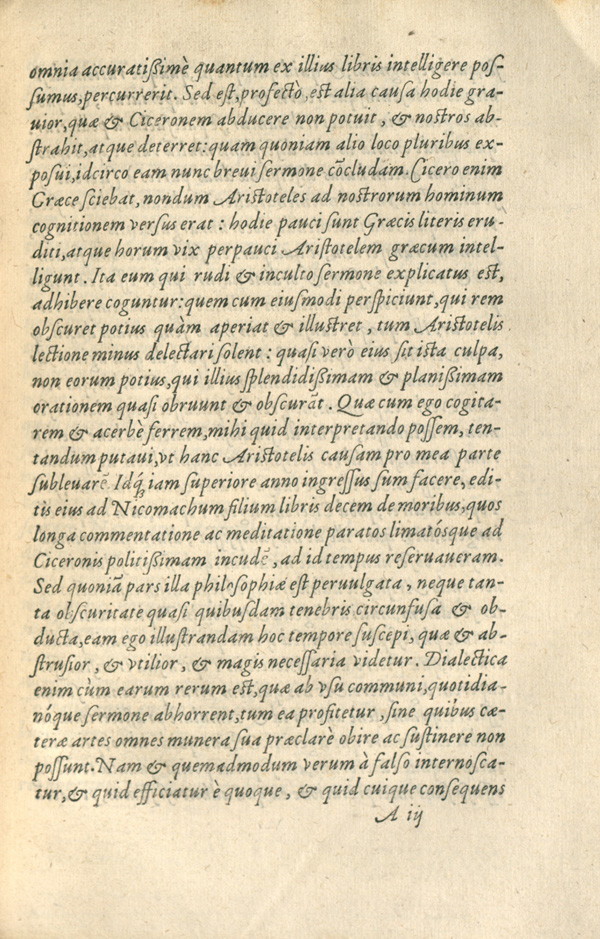 omnia accuratißimè quantum ex illius libris intelligere pos-
sumus, percurrerit. Sed est, profectò, est alia causa hodie gra-
uior, quæ & Ciceronem abducere non potuit, & nostros ab-
strahit, atque deterret: quam quoniam alio loco pluribus ex-
posui, idcirco eam nunc breui sermone cōcludam. Cicero enim
Græce sciebat, nondum Aristoteles ad nostrorum hominum
cognitionem versus erat: hodie pauci sunt Græcis literis eru-
diti, atque horum vix perpauci Aristotelem græcum intel-
ligunt. Ita eum qui rudi & inculto sermone explicatus est,
adhibere coguntur: quem cum eiusmodi perspiciunt, qui rem
obscuret potius quàm aperiat & illustret, tum Aristotelis
lectione minus delectari solent: quasi verò eius sit ista culpa,
non eorum potius, qui illius splendidißimam & planißimam
orationem quasi obruunt & obscurāt. Quæ cum ego cogita-
rem & acerbè ferrem, mihi quid interpretando possem, ten-
tandum putaui, vt hanc Aristotelis causam pro mea parte
subleuarē. Idq́; iam superiore anno ingressus sum facere, edi-
tis eius ad Nicomachum filium libris decem de moribus, quos
longa commentatione ac meditatione paratos limatósque ad
Ciceronis politißimam incudē, ad id tempus reseruaueram.
Sed quoniā pars illa philosophiæ est peruulgata, neque tan-
ta obscuritate quasi quibusdam tenebris circunfusa & ob-
ducta, eam ego illustrandam hoc tempore suscepi, quæ & ab-
strusior, & vtilior, & magis necessaria videtur. Dialectica
enim cùm earum rerum est, quæ ab vsu communi, quotidia-
nóque sermone abhorrent, tum ea profitetur, sine quibus cæ-
teræ artes omnes munera sua præclarè obire ac sustinere non
possunt. Nam & quemadmodum verum à falso internosca-
tur, & quid efficiatur è quoque, & quid cuique consequens
A iij